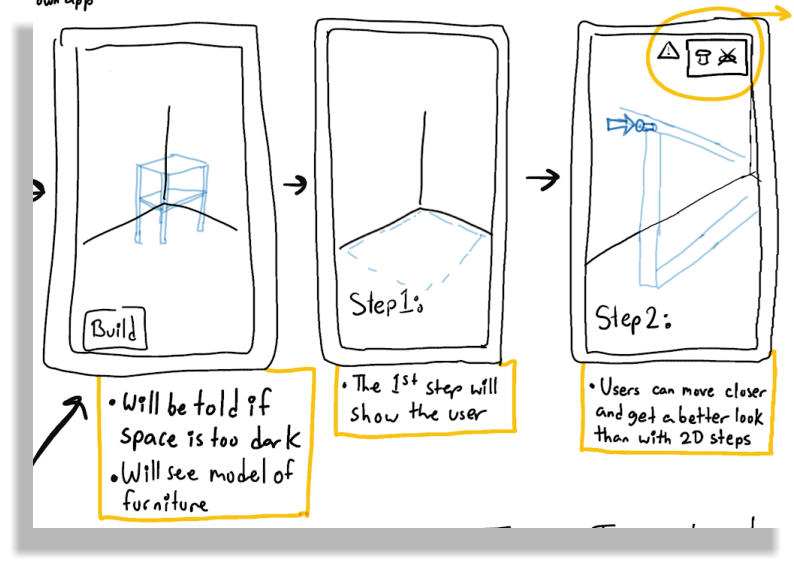 own app
Build
Step1:
Step2:
• Will be told if
space is too dark
• Will see model of
furniture
• The 1st step will
show the user
• Users can move closer
and get a better look
than with 2D steps